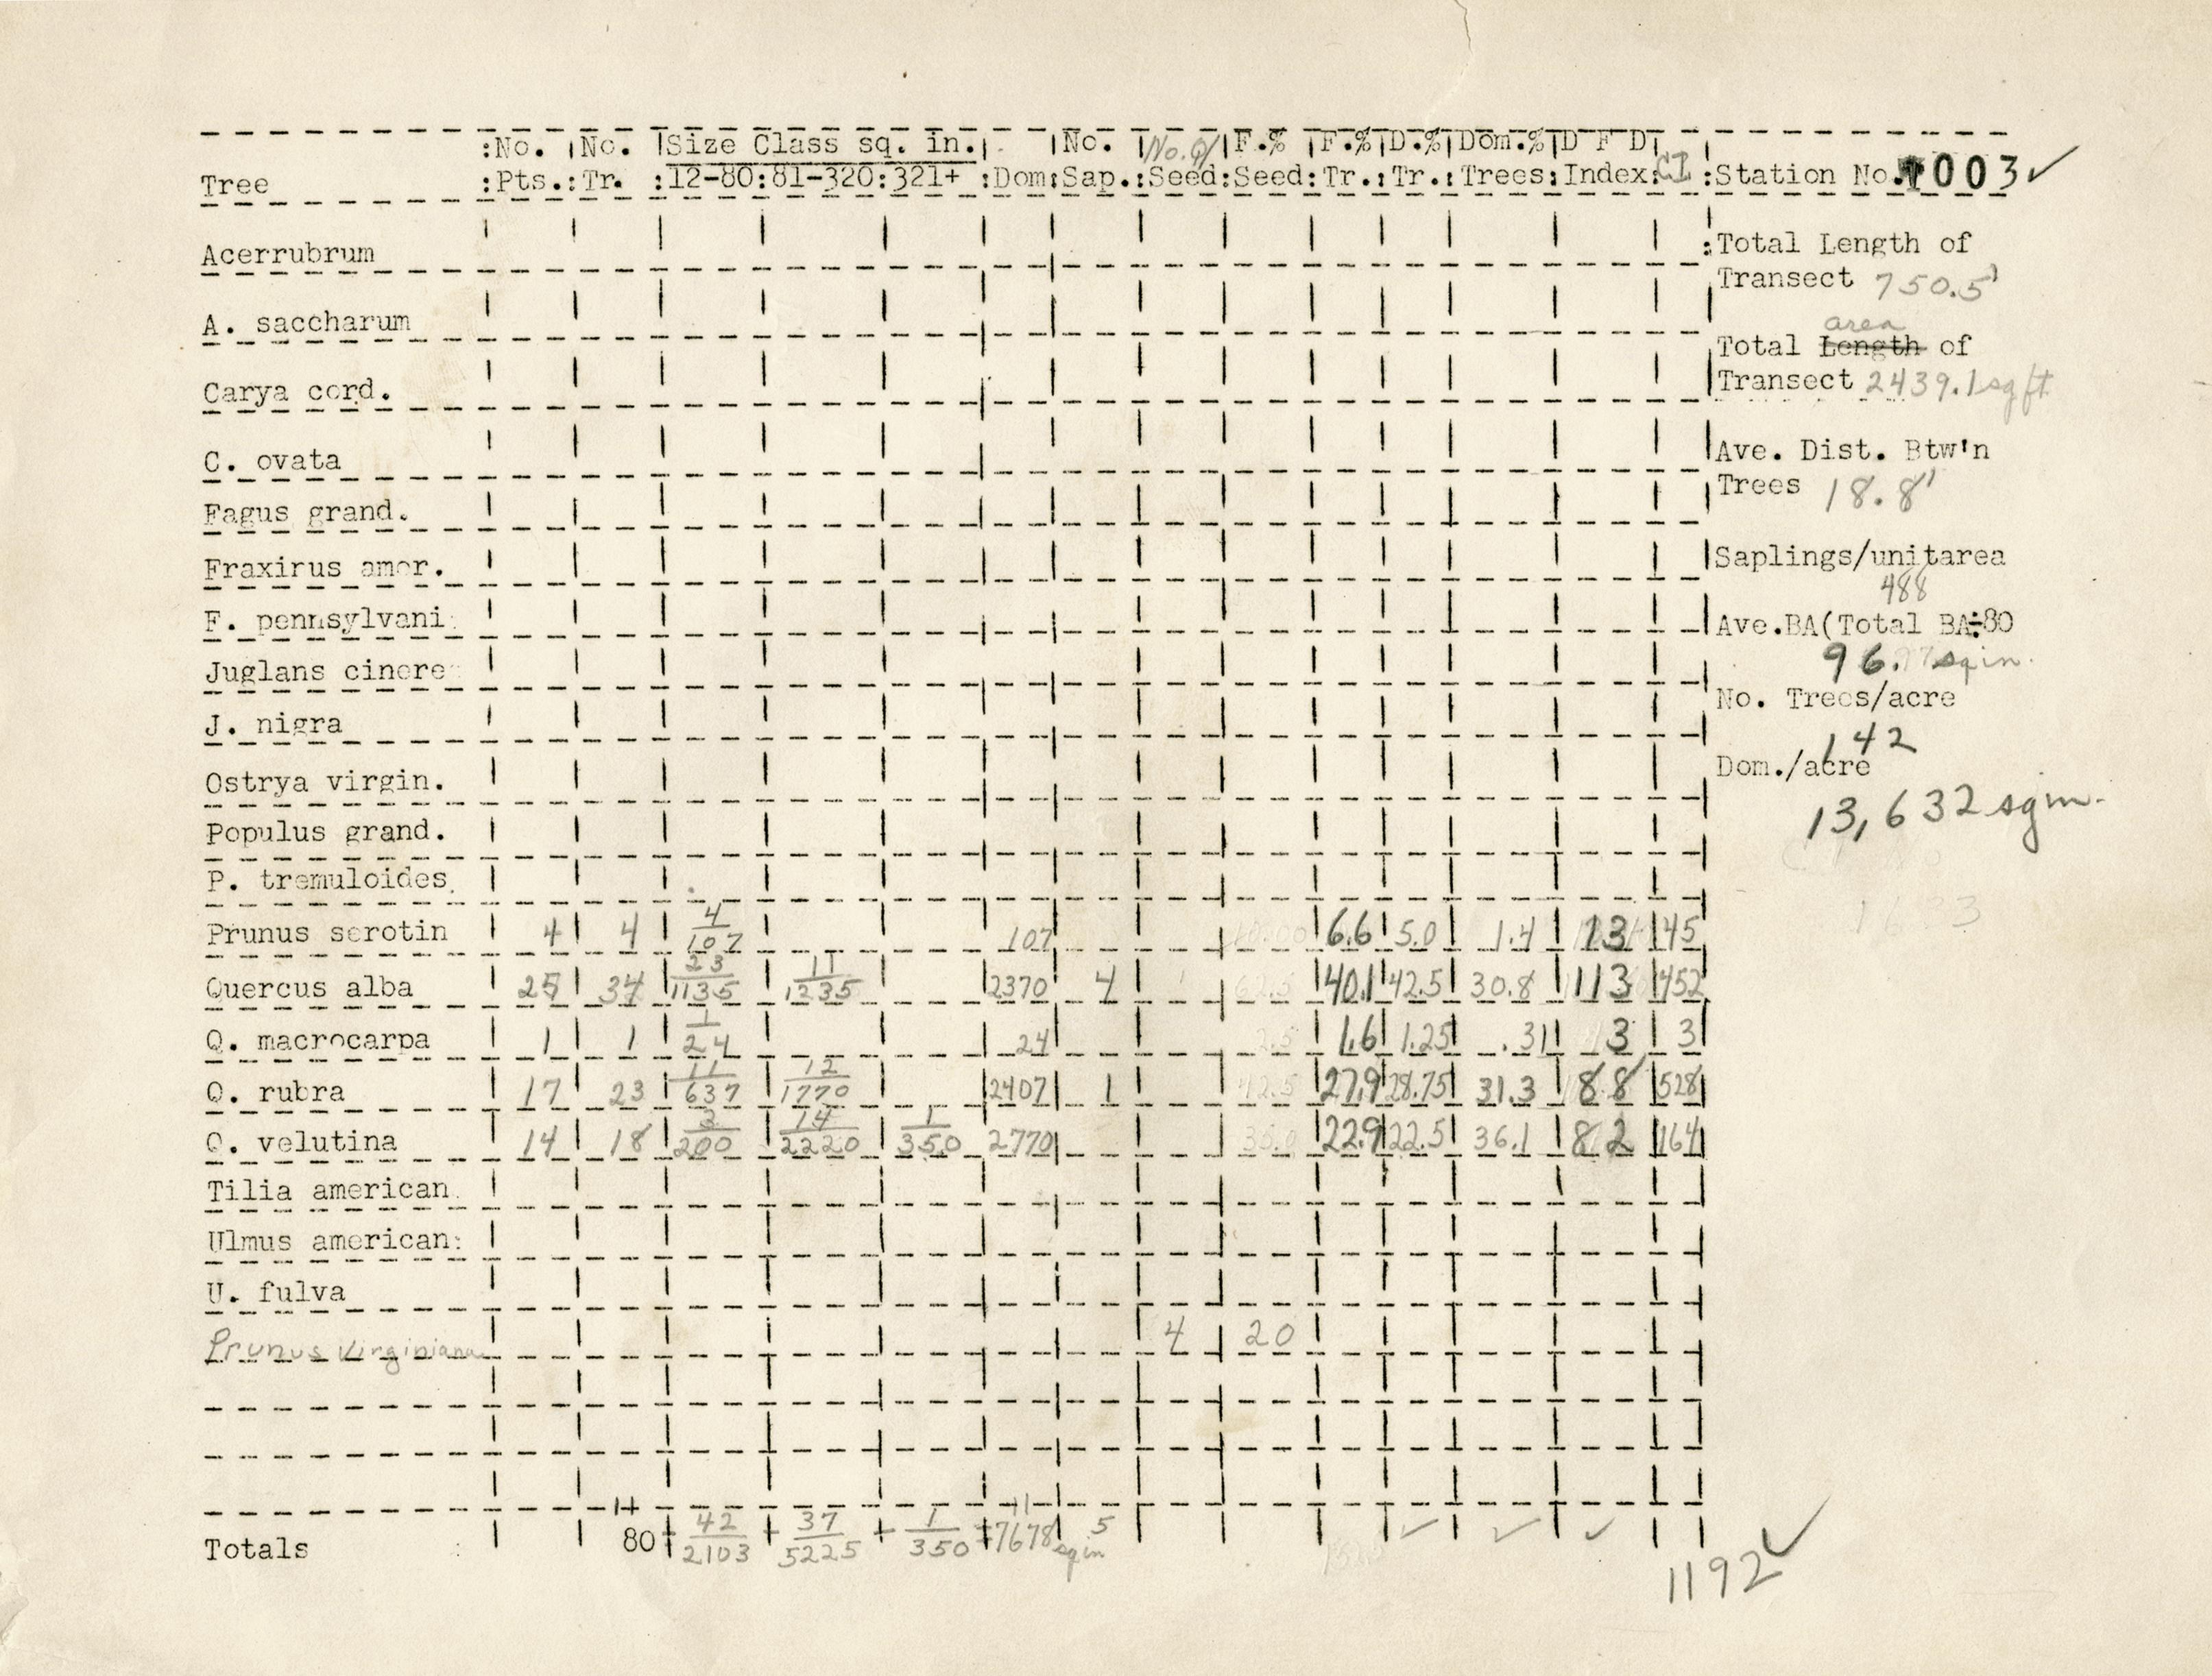 :No. No. Size Class sq. in. No. No. of F.% F.% D.% Dom.% D F D
Tree :Pts.: Tr. :12-80:81-320:321+ :Dom: Sap.: Seed: Seed: Tr.: Tr.: Trees: Index: CI :Station No. 1003 ✓
Acerrubrum
:Total Length of
Transect 750.5'
A. saccharum
area
Total Length of
Transect 2439.1 sq ft
Carya cord.
C. ovata
Ave. Dist. Btw'n
Trees 18.8'
Fagus grand.
Fraxirus amer.
Saplings/unitarea
488
F. pennsylvani
Ave.BA(Total BA÷80
96.97 sq in.
Juglans cinere
J. nigra
No. Trees/acre
142
Ostrya virgin.
Dom./acre
13,632 sq in.
Populus grand.
P. tremuloides
Prunus serotin 4 4 4/107 107 6.6 5.0 1.4 13 45
Quercus alba 25 34 23/1135 11/1235 2370 4 62.5 40.1 42.5 30.8 113 452
Q. macrocarpa 1 1 1/24 24 2.5 1.6 1.25 .31 3 3
Q. rubra 17 23 11/637 12/1770 2407 1 42.5 27.9 28.75 31.3 88 528
Q. velutina 14 18 3/200 14/2220 1/350 2770 35.0 22.9 22.5 36.1 82 164
Tilia american
Ulmus american:
U. fulva
Prunus virginiana 4 20
Totals : 80 42/2103 + 37/5225 + 1/350 = 7678 sq in 5 ✓ ✓ ✓
1192 ✓